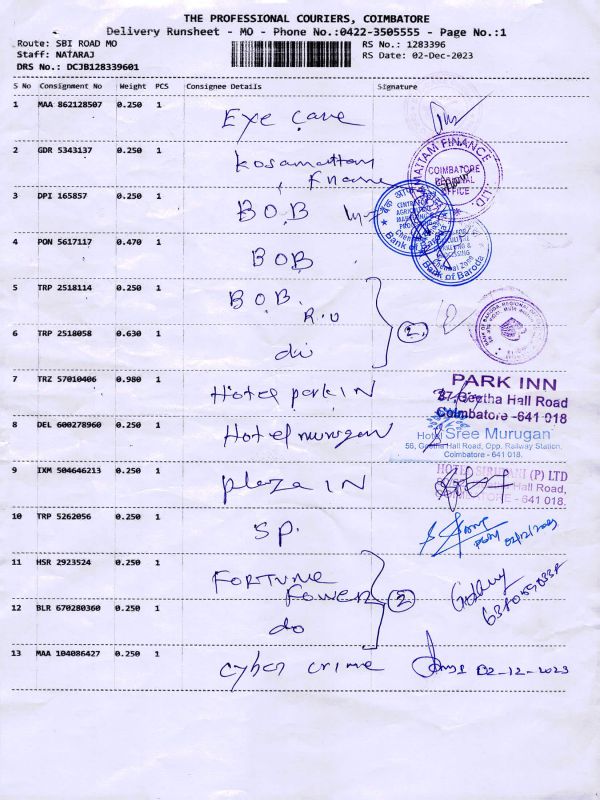 THE PROFESSIONAL COURIERS, COIMBATORE
Delivery Runsheet - MO - Phone No.:0422-3505555 - Page No.:1
Route: SBI ROAD MO
Staff: NATARAJ
DRS No.: DCJB128339601
RS No.: 1283396
RS Date: 02-Dec-2023
S No Consignment No Weight PCS Consignee Details Signature
1 MAA 862128507 0.250 1 Eye care
2 GDR 5343137 0.250 1 Kosamattam
Finance
MATTAM FINANCE LTD.
COIMBATORE
REGIONAL
OFFICE
3 DPI 165857 0.250 1 B.O.B
Bank of Baroda
4 PON 5617117 0.470 1 BOB
Bank of Baroda
5 TRP 2518114 0.250 1 BOB.
R.O
2
6 TRP 2518058 0.630 1 do
7 TRZ 57010406 0.980 1 Hotel park IN
PARK INN
37, Geetha Hall Road
Coimbatore -641 018
8 DEL 600278960 0.250 1 Hotel murugan
Hotel Sree Murugan
56, Geetha Hall Road, Opp. Railway Station,
Coimbatore - 641 018.
9 IXM 504646213 0.250 1 plaza IN
(P) LTD
Hall Road,
- 641 018.
10 TRP 5262056 0.250 1 S.P.
02/12/2023
11 HSR 2923524 0.250 1 Fortune
Tower
2
12 BLR 670280360 0.250 1 do
13 MAA 104086427 0.250 1 cyber crime
02-12-2023